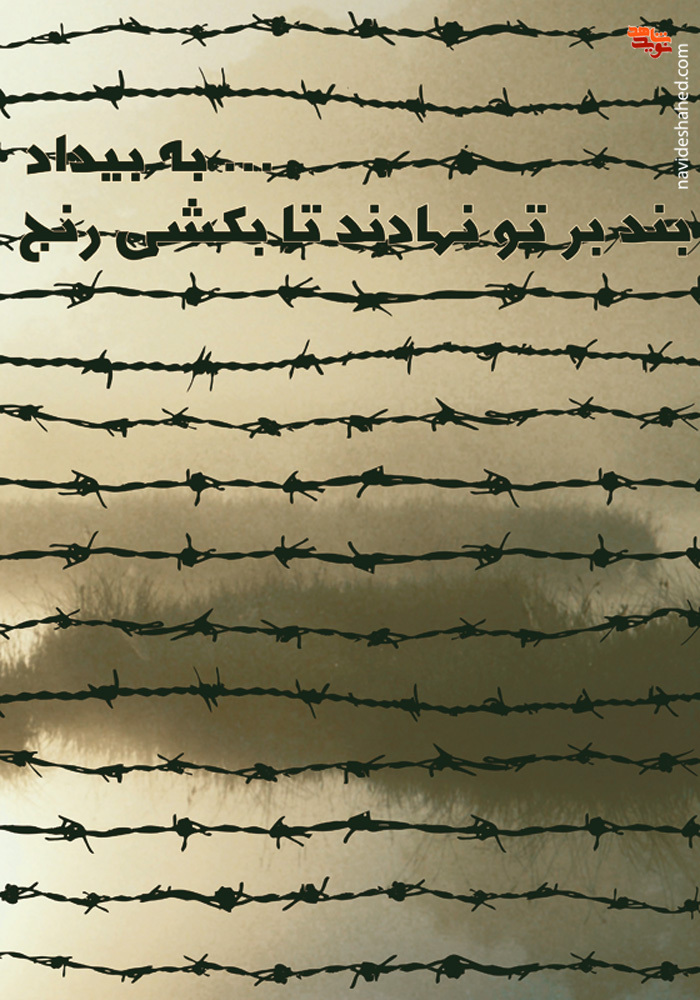 ... به بیداد
بند بر تو نهادند تا بکشی رنج
نوید شاهد
navideshahed.com